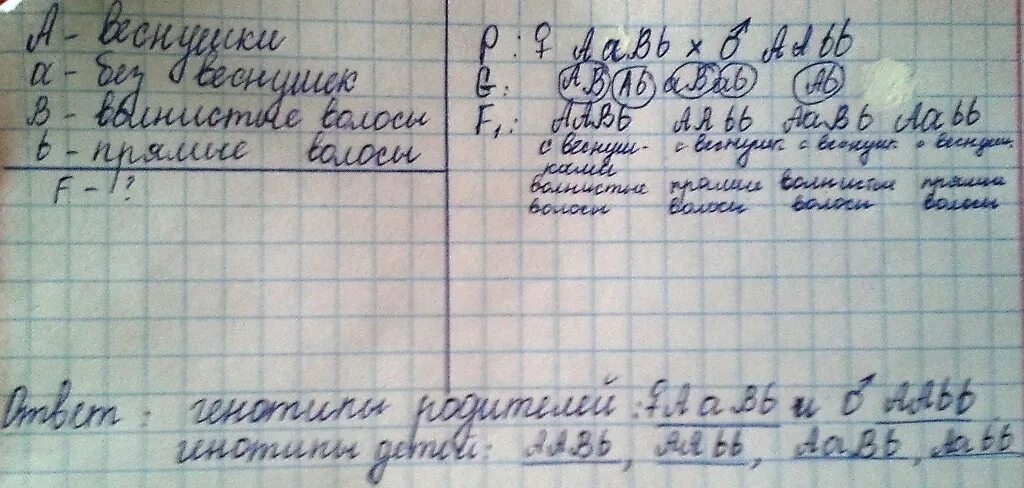 A - веснушки
a - без веснушек
B - волнистые волосы
b - прямые волосы
F - ?
P: ♀ AaBb x ♂ AAbb
G: AB Ab aB ab Ab
F₁: AABb AAbb AaBb Aabb
с веснуш- с веснушк. с веснушк с веснушк.
ками
волнистые прямые волнистые прямые
волосы волосы волосы волосы
Ответ: генотипы родителей: ♀AaBb и ♂ AAbb
генотипы детей: AABb, AAbb, AaBb, Aabb